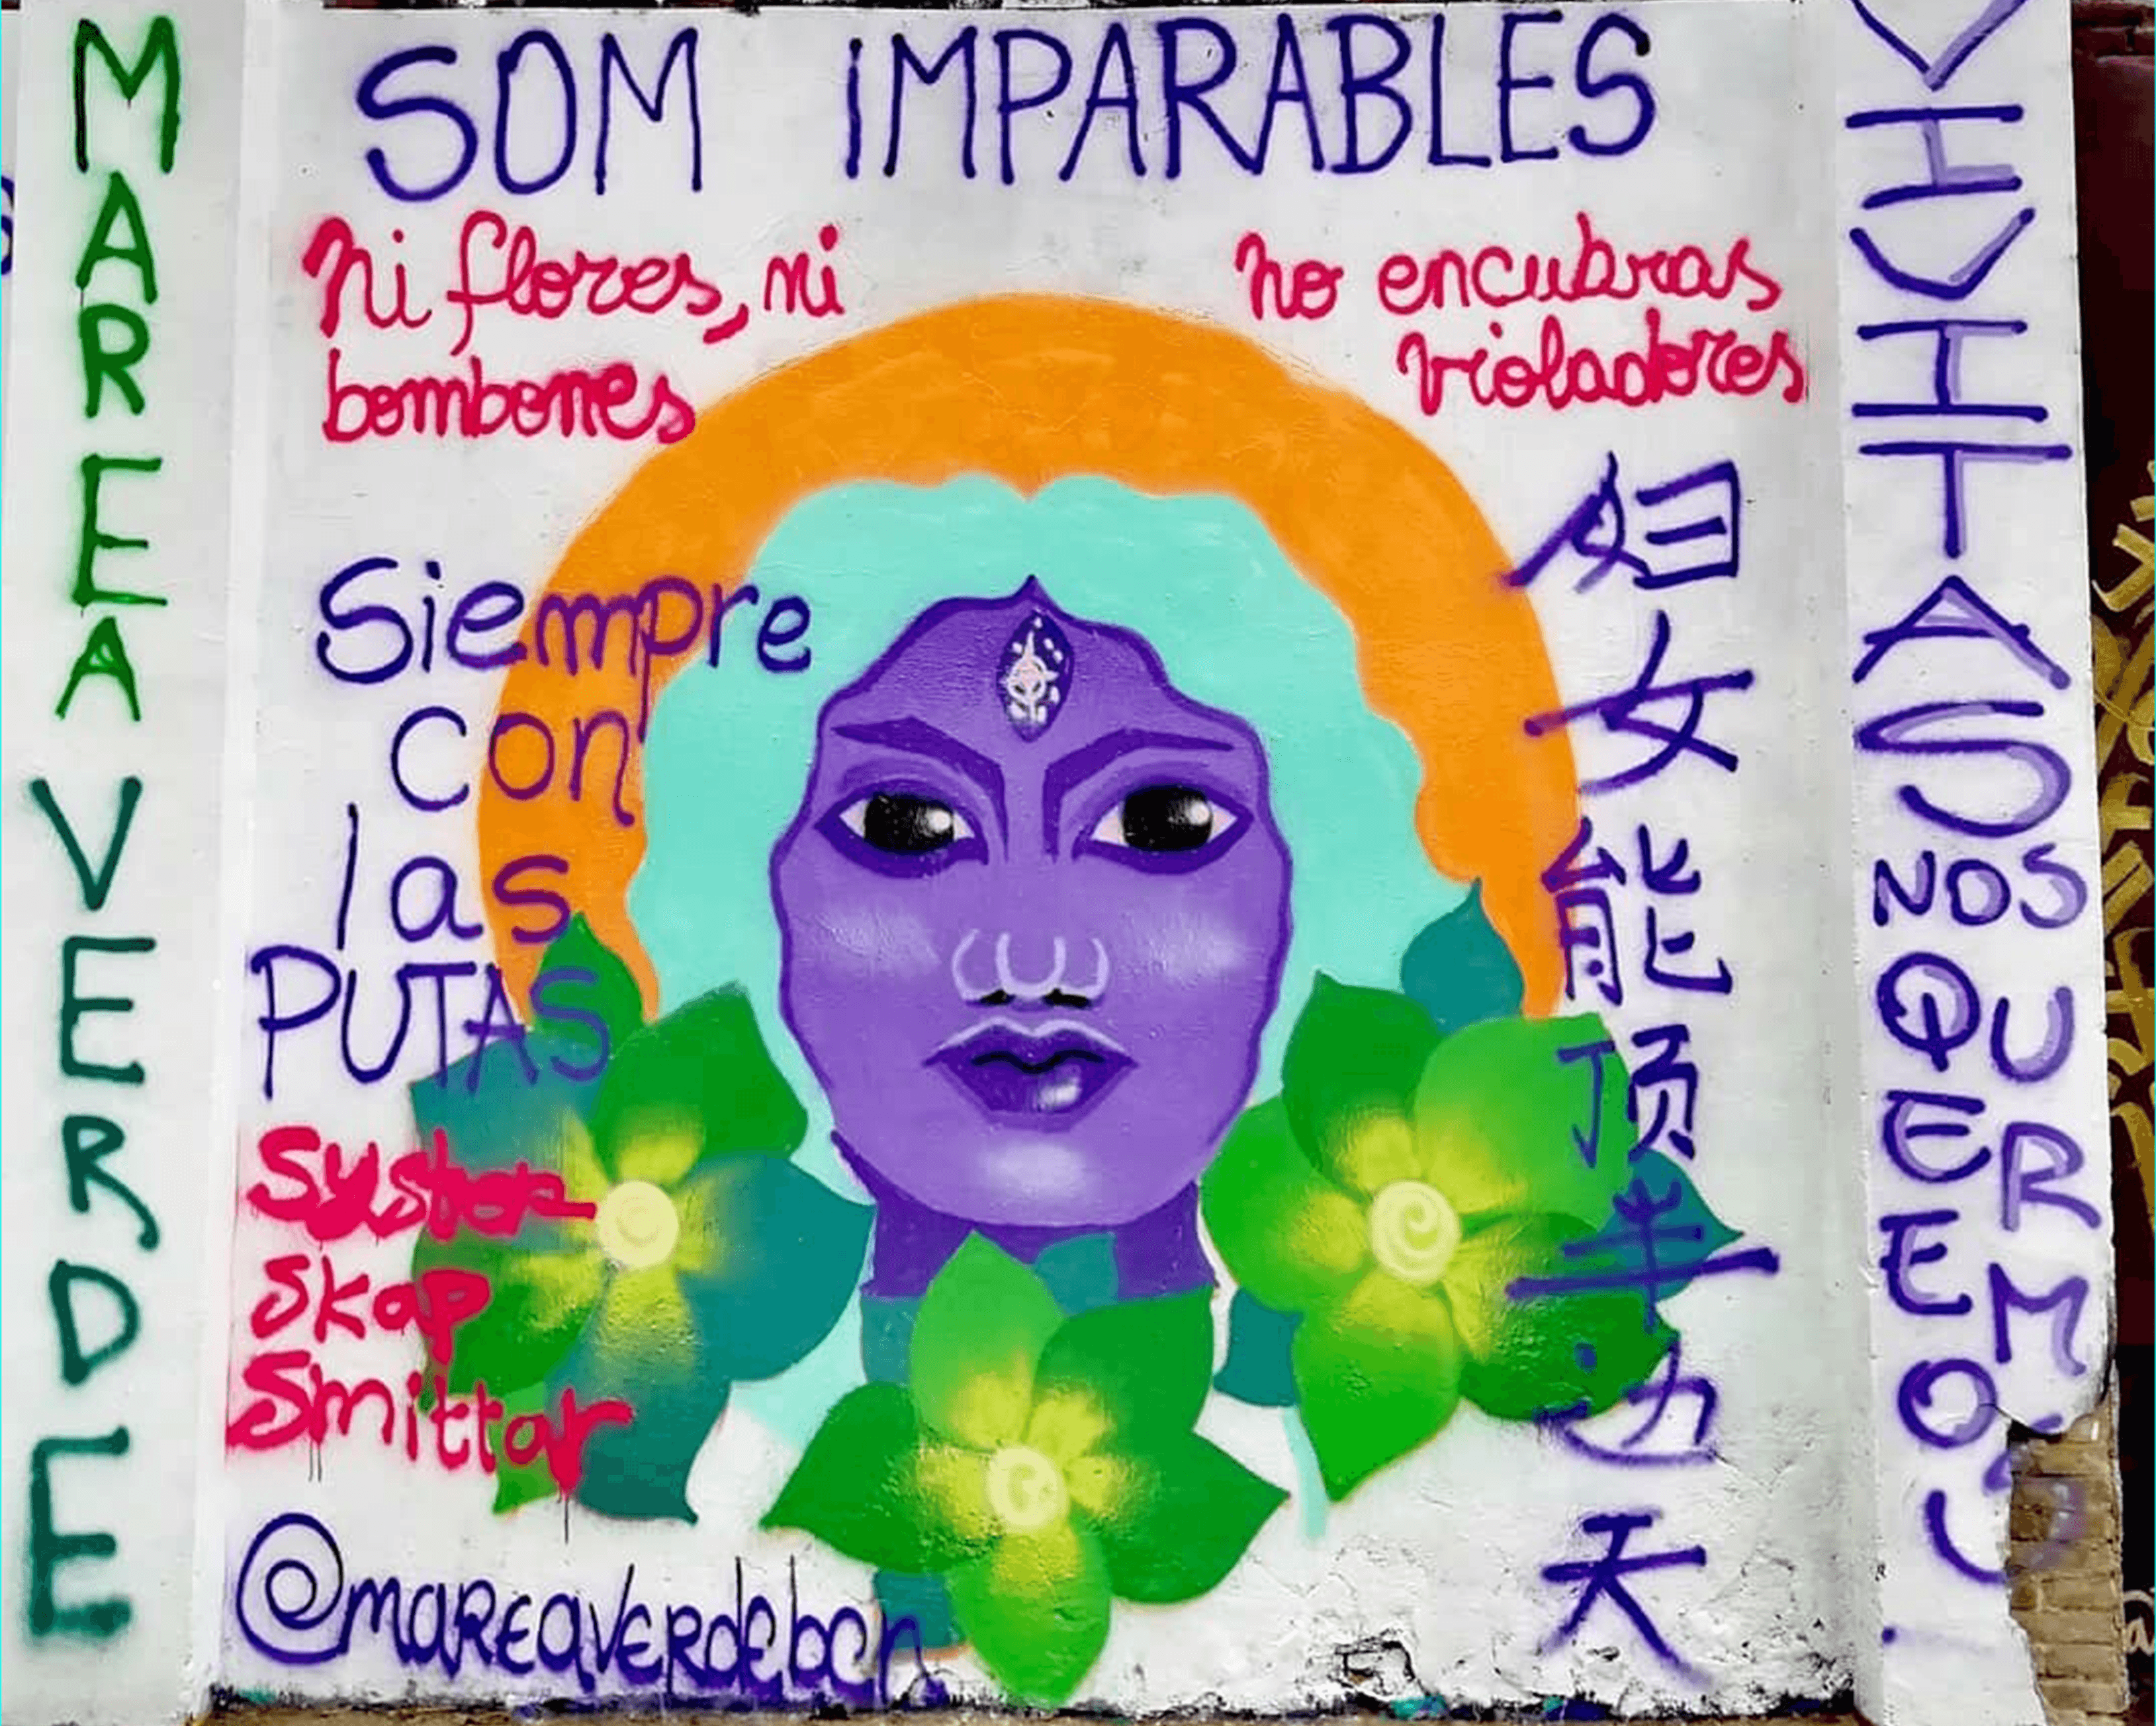 MAREA VERDE
SOM IMPARABLES
ni flores, ni
bombones
no encubras
violadores
Siempre
con
las
PUTAS
妇女能顶半边天
Syster
Skap
Smittar
@mareaverdebcn
VIVITAS
NOS
QUEREMOS